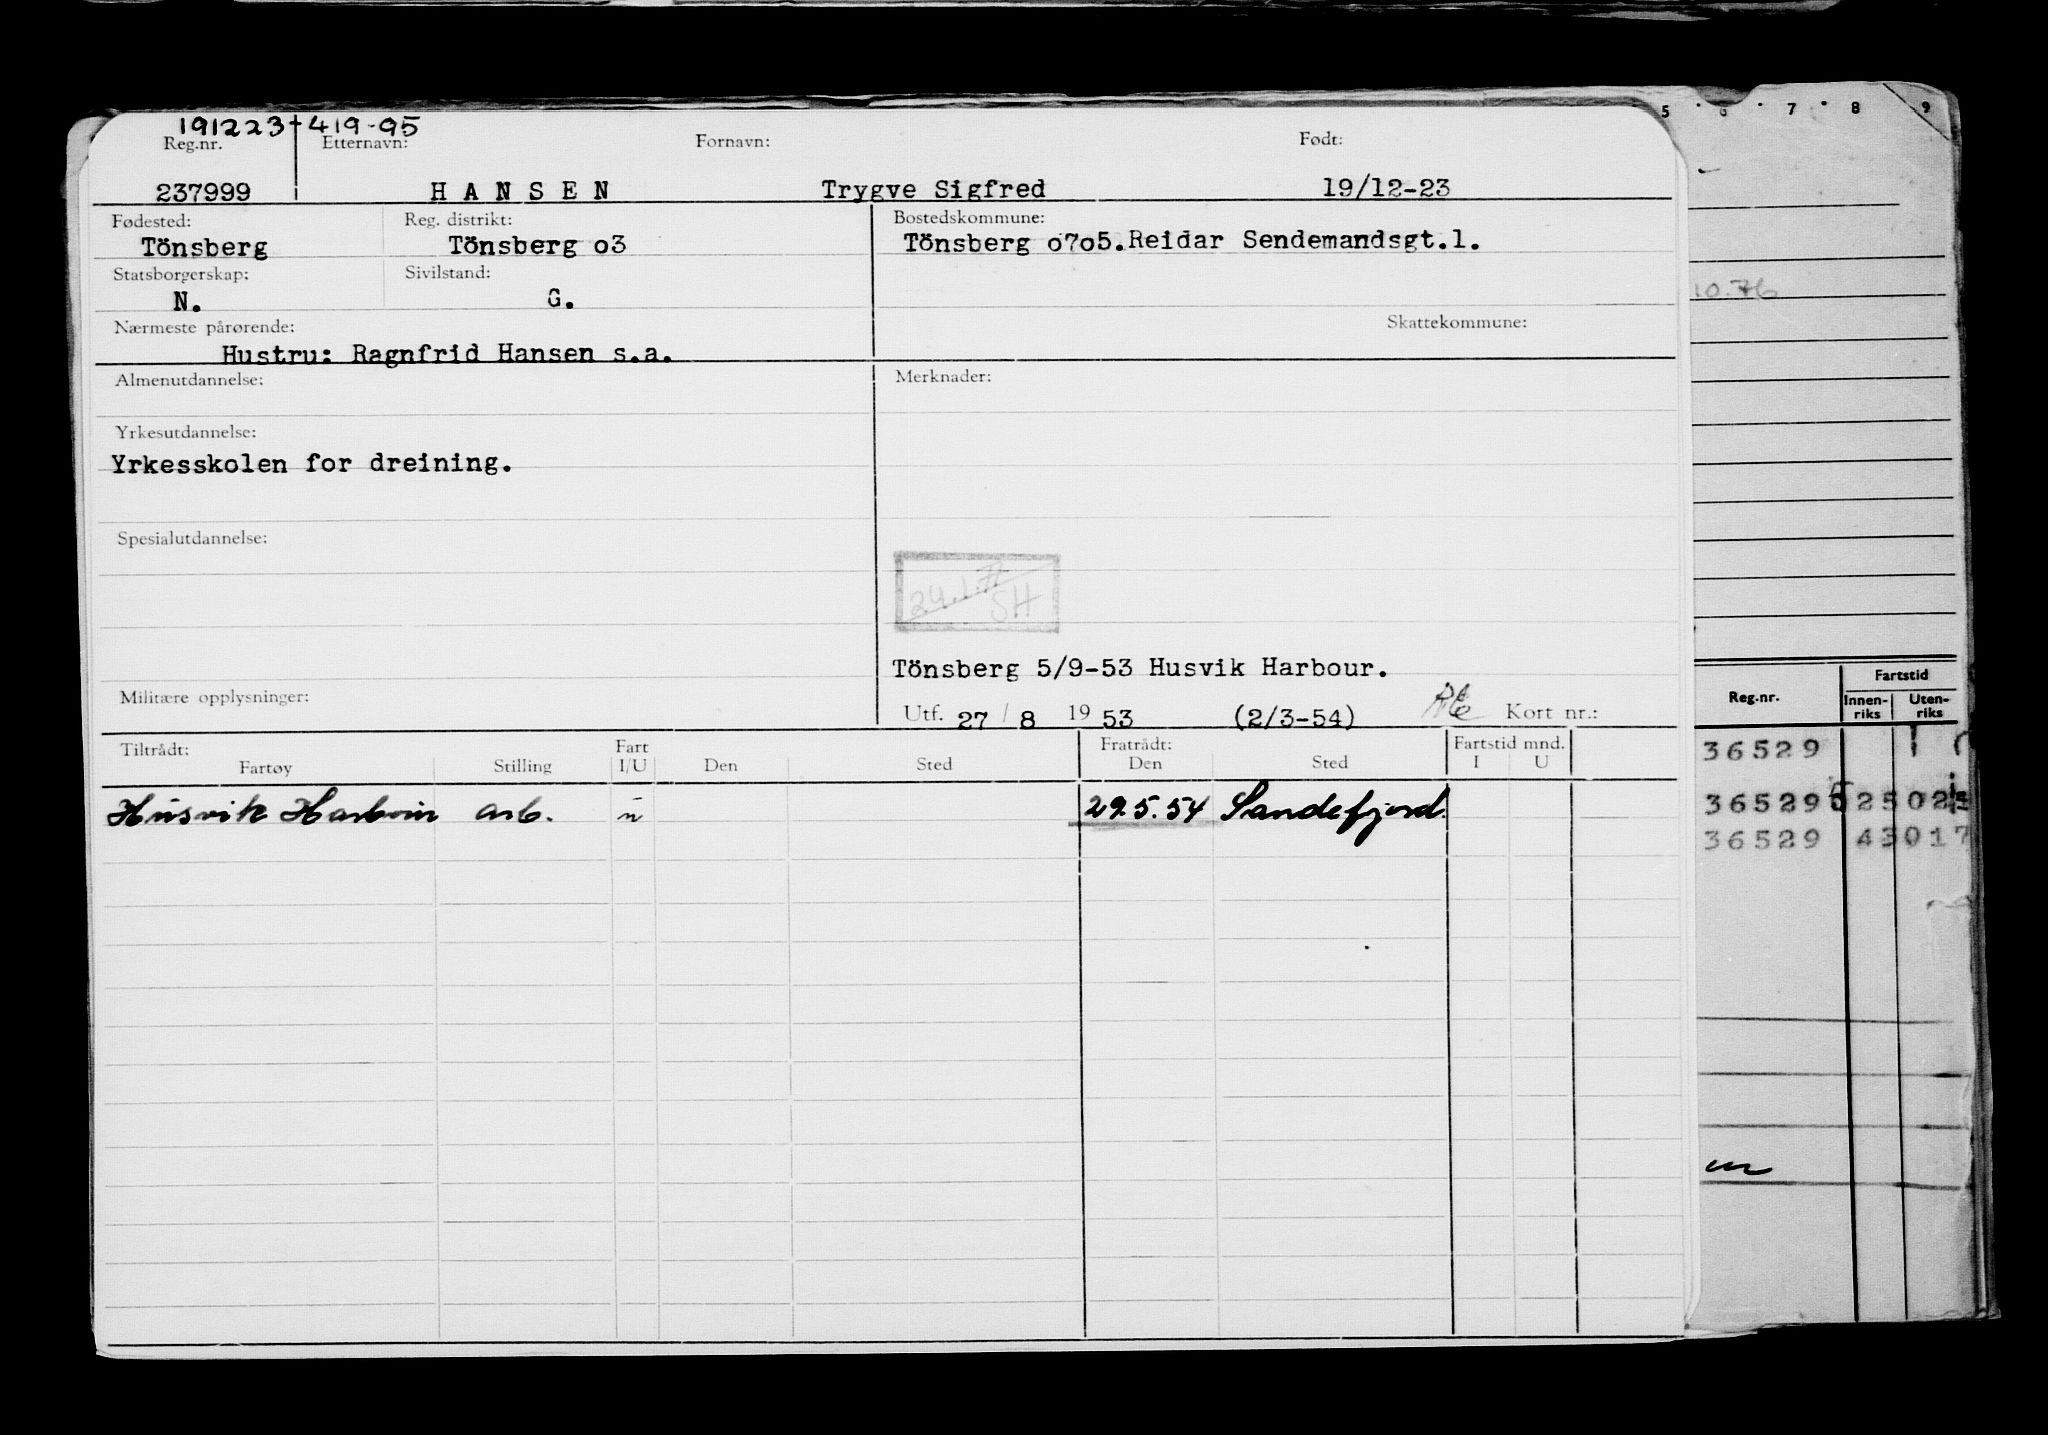 191223 419-95
Reg.nr. Etternavn: Fornavn: Født:
237999 H A N S E N Trygve Sigfred 19/12-23
Fødested: Reg. distrikt: Bostedskommune:
Tönsberg Tönsberg o3 Tönsberg o7o5.Reidar Sendemandsgt.1.
Statsborgerskap: Sivilstand:
N. G.
Nærmeste pårørende: Skattekommune:
Hustru: Ragnfrid Hansen s.a.
Almenutdannelse: Merknader:
Yrkesutdannelse:
Yrkesskolen for dreining.
Spesialutdannelse:
24.1.77
SH
Tönsberg 5/9-53 Husvik Harbour.
Militære opplysninger:
Utf. 27 / 8 19 53 (2/3-54) Kort nr.:
Tiltrådt: Fart Fratrådt: Fartstid mnd.
Fartøy Stilling I/U Den Sted Den Sted I U
Husvik Harbour arb. u 29.5.54 Sandefjord.
5 6 7 8 9
10.76
Fartstid
Reg.nr. Innen-riks Uten-riks
36529
36529 25 02
36529 43017